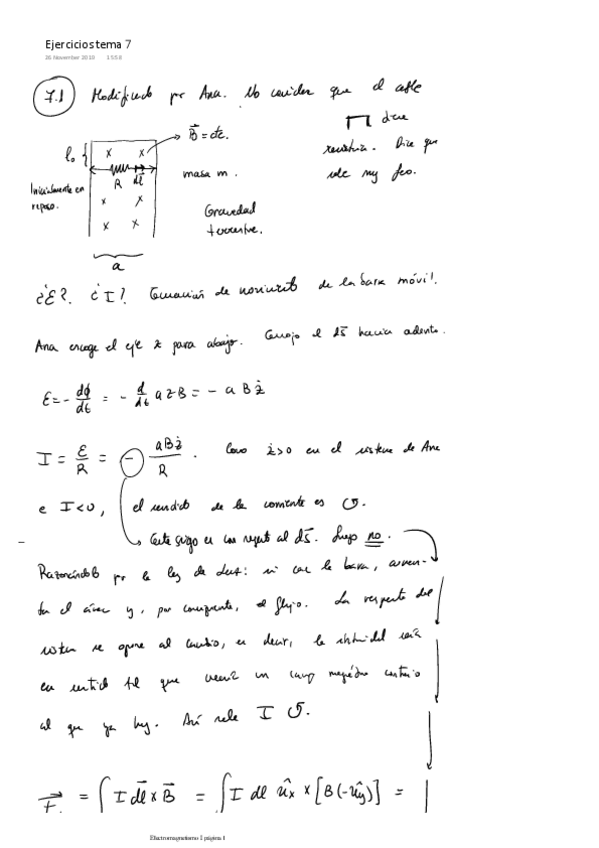 Ejercicios tema 7
26 November 2010 15:58
7.1 Modificado por Ana. No considera que el cable
⊓ dará
l₀ { x x B⃗ = cte.
resistencia. Dice que
masa m.
R dl⃗
Inicialmente en
reposo.
x x
Gravedad
terrestre.
x x
a
¿ε?. ¿I?. Ecuación de movimiento de la barra móvil.
Ana escoge el eje z para abajo. Escojo el dS⃗ hacia adentro.
ε = - dϕ/dt = - d/dt a z B = - a B ż
I = ε/R = - aBż/R . Como ż>0 en el sistema de Ana
e I<0, el sentido de la corriente es ↺.
Este signo es con respecto al dS⃗. Luego no.
Razonándolo por la ley de Lenz: si cae la barra, aumen-
ta el área y, por consiguiente, el flujo. La respuesta del
sistema se opone al cambio, es decir, la intensidad será
en sentido tal que creará un campo magnético contrario
al que ya hay. Así sale I ↺.
F⃗ = ∫ I dl⃗ x B⃗ = ∫ I dl ûx x [B(-ûy)] =
Electromagnetismo I página 1